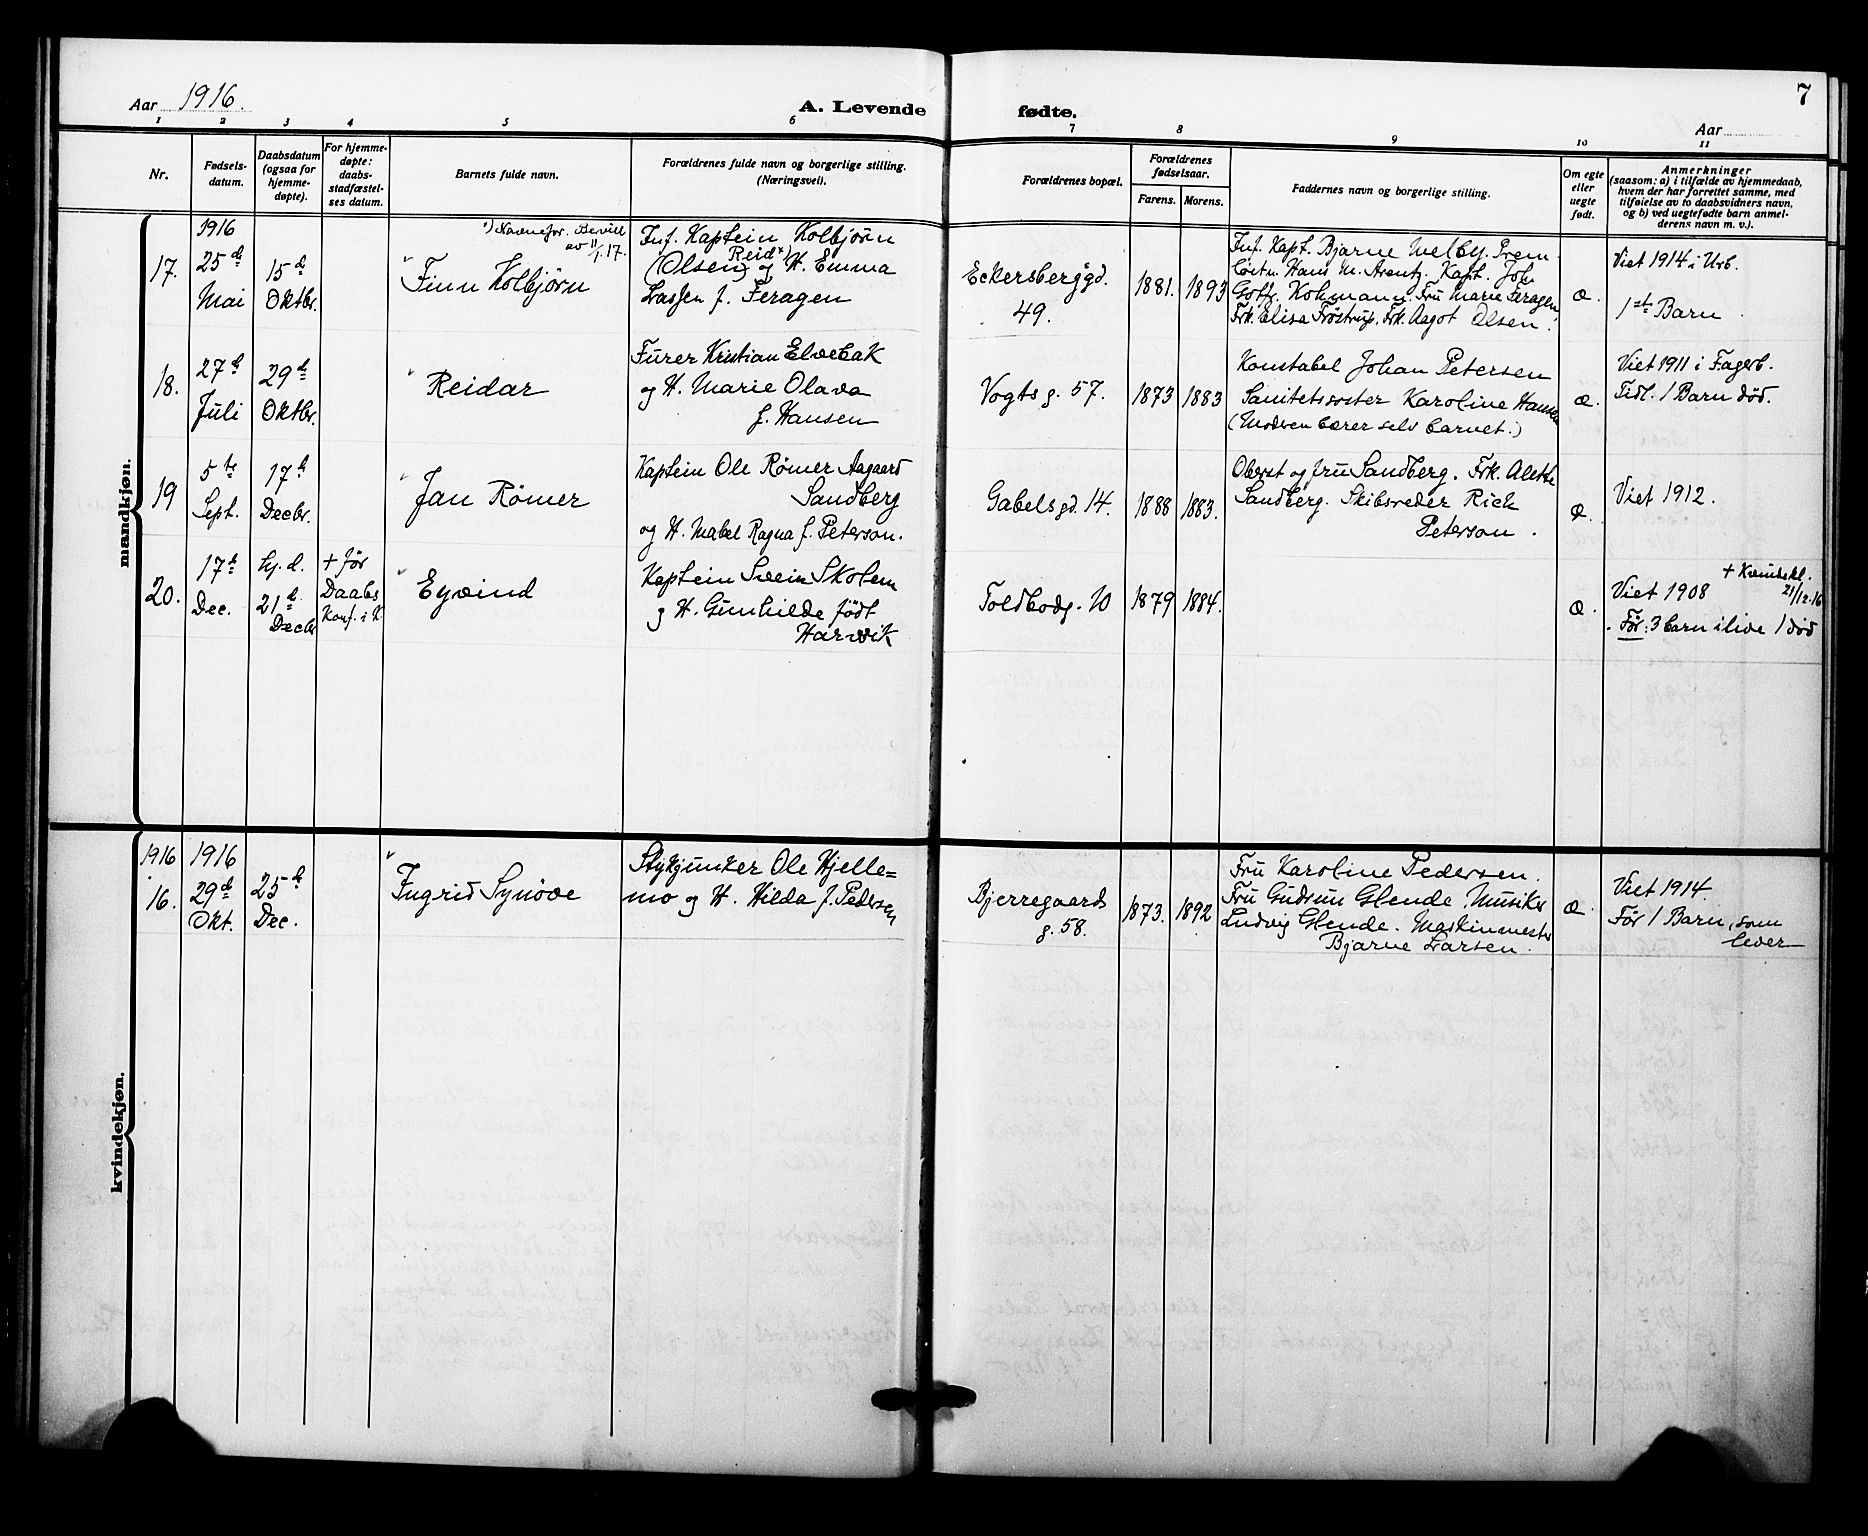 Aar 1916.
A. Levende
fødte.
7
Aar
1 2 3 4 5 6 7 8 9 10 11
Nr.
Fødsels-
datum.
Daabsdatum
(ogsaa for
hjemme-
døpte).
For hjemme-
døpte:
daabs-
stadfæstel-
ses datum.
Barnets fulde navn.
Forældrenes fulde navn og borgerlige stilling.
(Næringsvei).
Forældrenes bopæl.
Forældrenes
fødselsaar.
Farens. Morens.
Faddernes navn og borgerlige stilling.
Om egte
eller
uegte
født.
Anmerkninger
(saasom: a) i tilfælde av hjemmedaab,
hvem der har forrettet samme, med
tilføielse av to daabsvidners navn,
og b) ved uegtefødte barn anmel-
derens navn m. v.).
mandkjøn.
17.
1916
25de
Mai
15de
Oktbr.
Navnefor. Bevill
av 11/1.17.
Finn Kolbjørn
Inf. Kaptein Kolbjørn
Reid
(Olsen) og H. Emma
Lassen f. Feragen
Eckersberggd.
49.
1881. 1893
Inf. Kapt. Bjarne Welby. Prem.
løitn. Hans M. Arentz. Kapt. Joh.
Gottf. Kohmann. Fru Marie Feragen
Frk. Elisa Frøstrup. Frk. Aagot Olsen.
Æ.
Viet 1914 i Urb.
1ste Barn
18.
27de
Juli
29de
Oktbr.
Reidar
Furer Kristian Elvebak
og H. Marie Olava
f. Hansen
Vogts g. 57.
1873 1883
Konstabel Johan Petersen
Sanitetssoster Karoline Hansen
(Moderen bærer selv barnet.)
Æ.
Viet 1911 i Fagerb.
Tidl. 1 Barn død.
19
5te
Sept.
17de
Decbr.
Jan Rømer
Kaptein Ole Rømer Aagaard
Sandberg
og H. Mabel Ragna f. Peterson.
Gabelsgd. 14.
1888 1883.
Oberst og fru Sandberg. Frk. Alethe
Sandberg. Skibsreder Rich
Peterson.
Æ.
Viet 1912.
20.
17de
Dec.
hj. d.
21de
Decbr
+ før
Daabs
Konf. i K.
Eyvind
Kaptein Svein Skolem
og H. Gunhilde født
Harwik
Toldbodg. 10
1879 1884.
Æ.
+ Kvindekl.
21/12.16
Viet 1908
Før: 3 barn ilive 1 død
kvindekjøn.
1916
16.
1916
29de
Okt.
25de
Dec.
Ingrid Synöve
Stykjunker Ole Hjelle=
mo og H. Hilda f. Pedersen
Bjerregaards
g. 58.
1873. 1892
Fru Karoline Pedersen.
Fru Gudrun Glende. Musiker
Ludvig Glende. Maskinmester
Bjarne Larsen.
Æ.
Viet 1914.
Før 1 Barn, som
lever